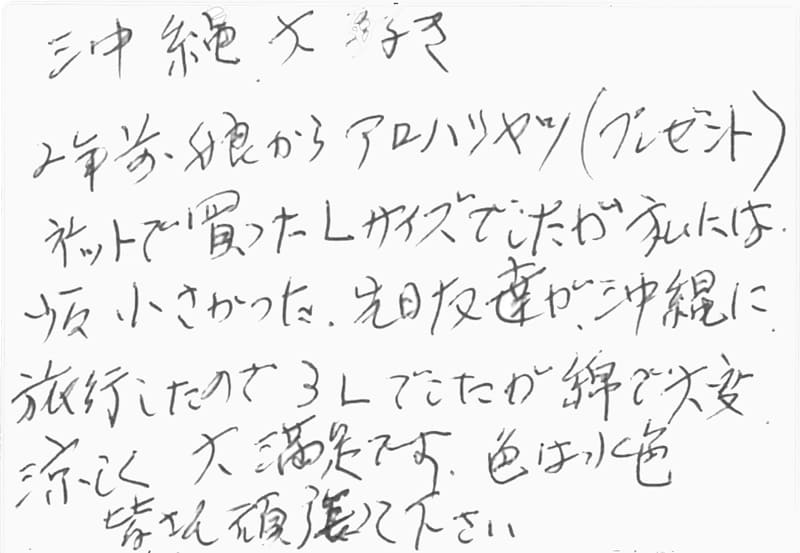 沖縄大好き
2年前娘からアロハシャツ(プレゼント)
ネットで買ったLサイズでしたが私には
小さかった、先日友達が、沖縄に
旅行したので3Lでしたが綿で大変
涼しく 大満足です、色は水色
皆さん頑張って下さい